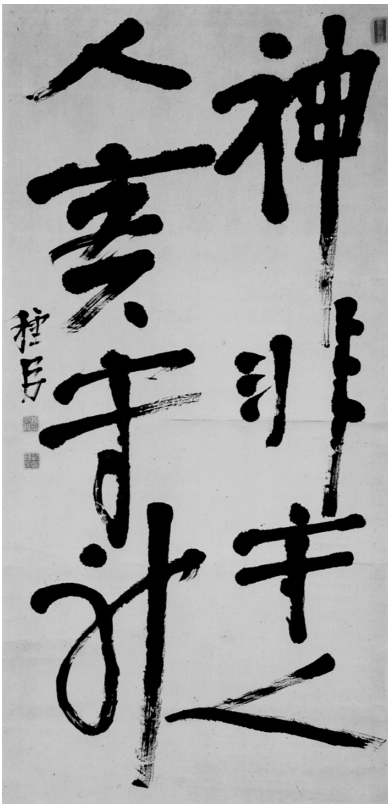 神非守人
人實守神
種臣